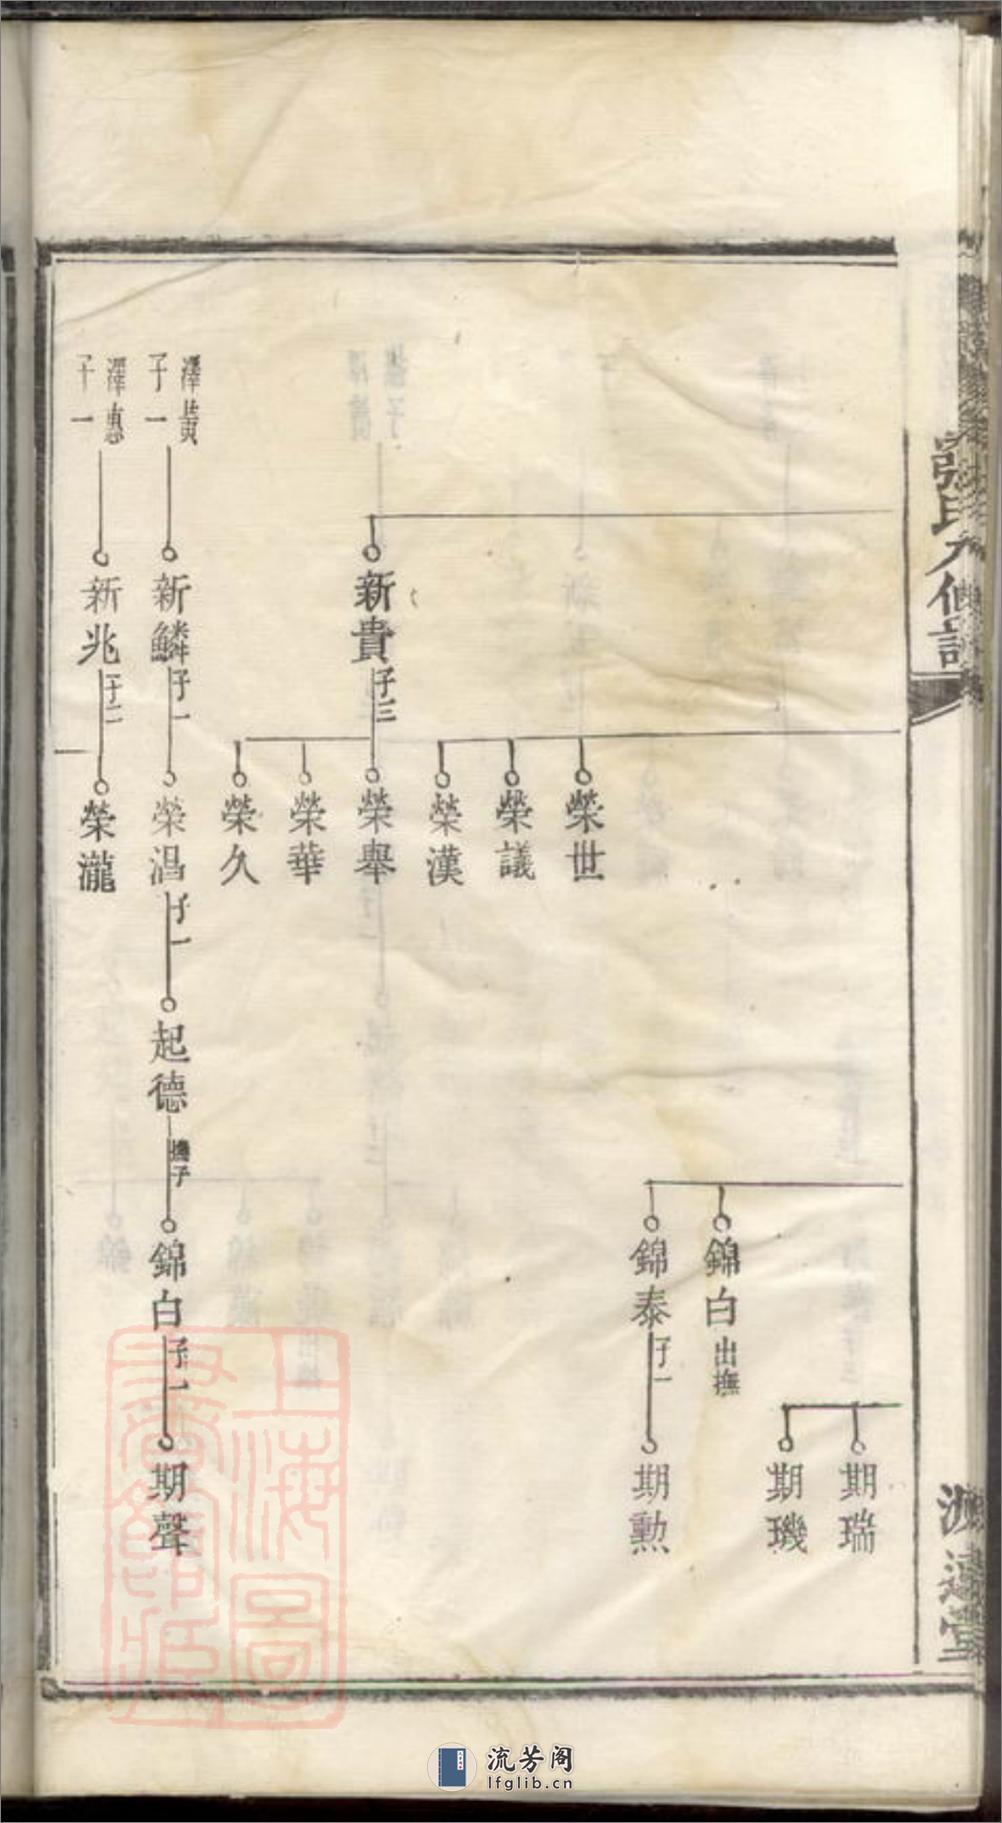 張氏九修譜
期瑞
期璣
錦白 出撫
錦泰 子一
期勲
榮世
榮議
榮漢
新貴 子三
榮舉
榮華
榮久
澤黄 子一
新鱗 子一
榮淐 子一
起德 撫子
錦白 子一
期聲
澤惠 子一
新兆 子二
榮瀧
上海圖書館藏
流芳阁
lfglib.cn